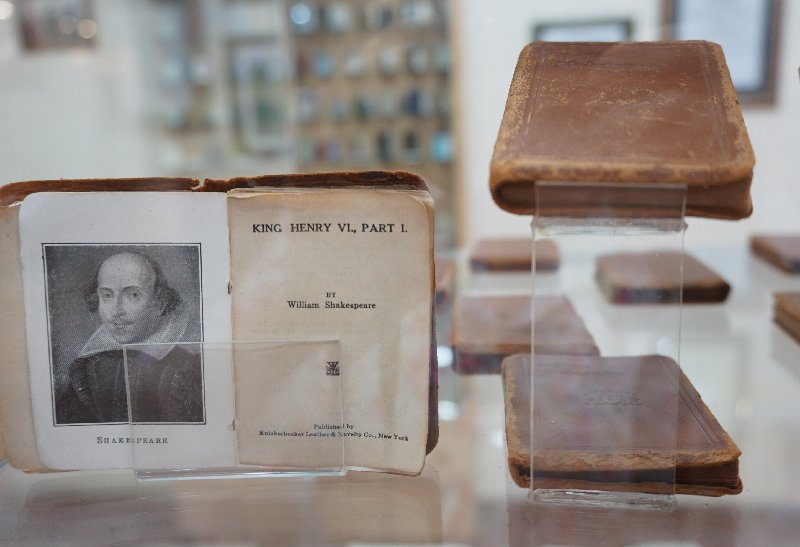 SHAKESPEARE
KING HENRY VI., PART I.
BY
William Shakespeare
Published by
Knickerbocker Leather & Novelty Co., New York